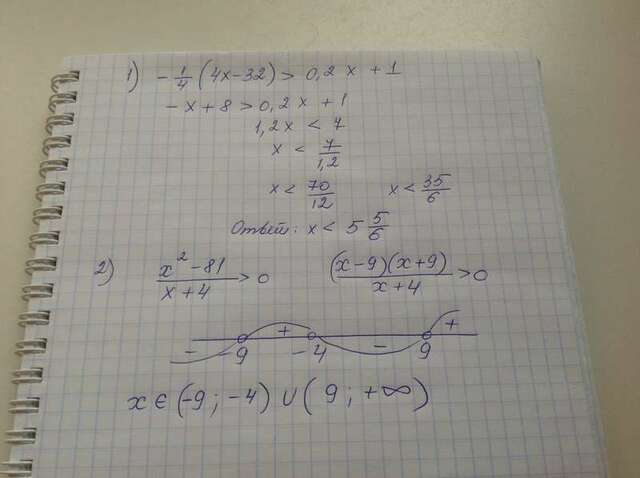 1) -1/4 (4x-32) > 0,2x + 1
-x + 8 > 0,2x + 1
1,2x < 7
x < 7/1,2
x < 70/12 x < 35/6
Ответ: x < 5 5/6
2) x²-81/x+4 > 0 (x-9)(x+9)/x+4 > 0
- + - +
-9 -4 9
x ∈ (-9; -4) ∪ (9; +∞)